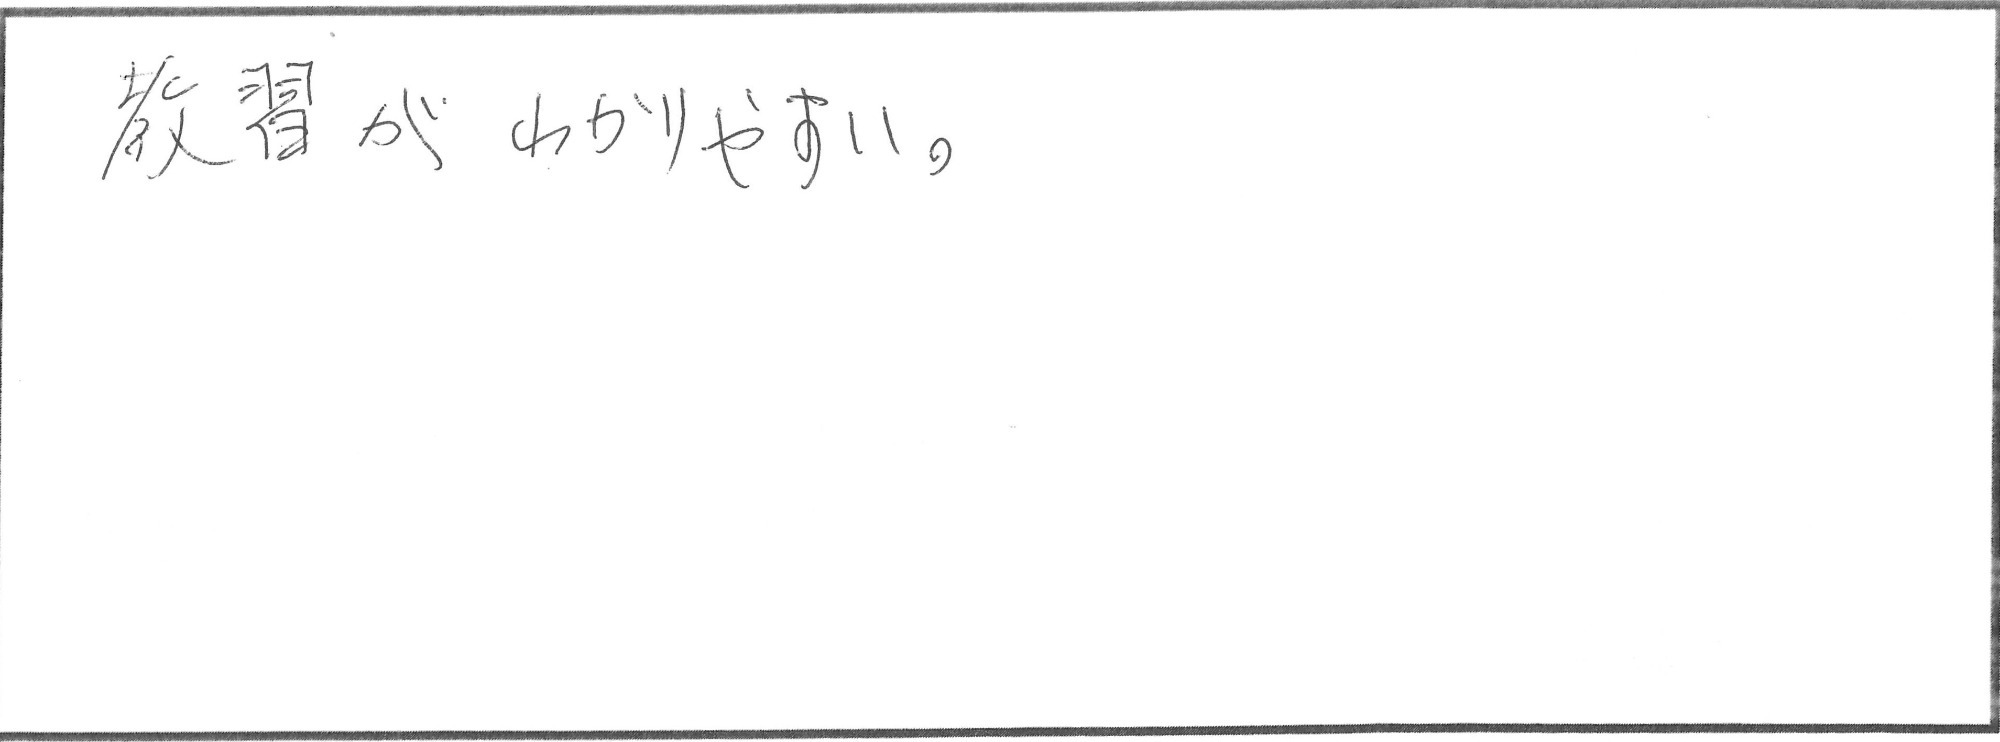 教習が わかりやすい。